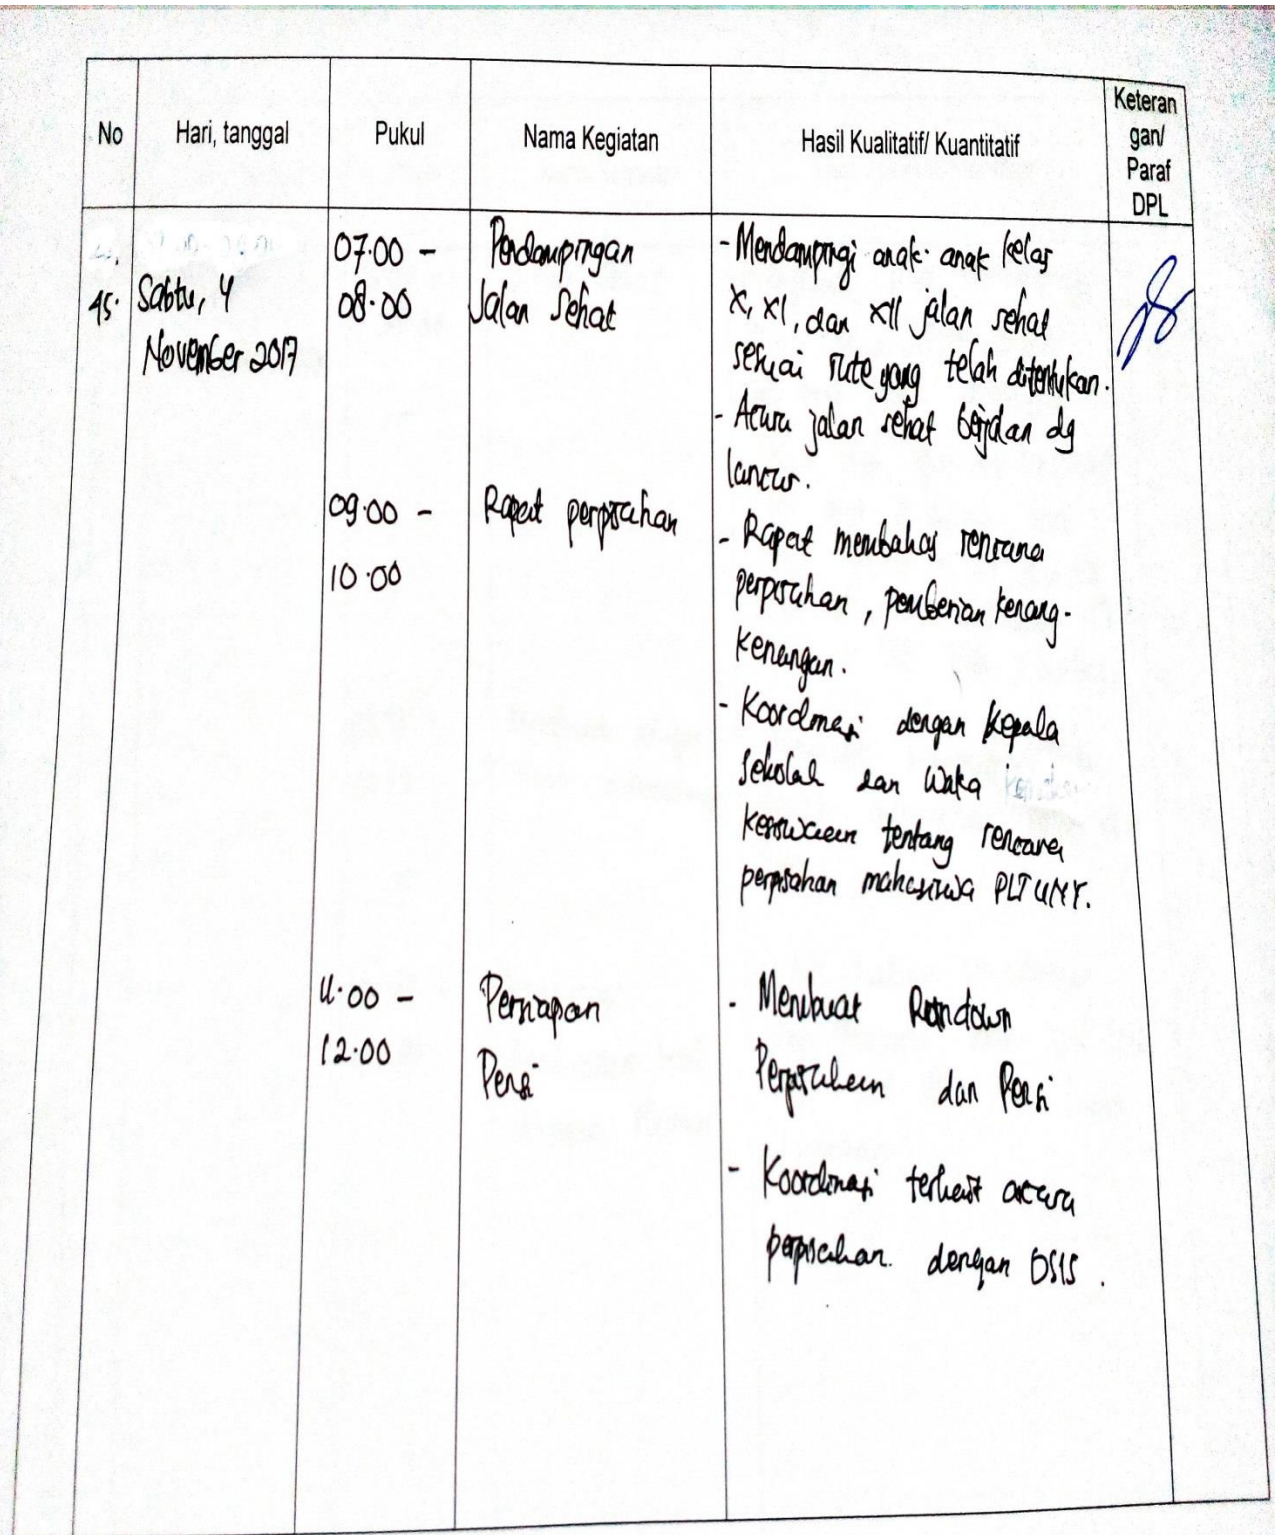 No
Hari, tanggal
Pukul
Nama Kegiatan
Hasil Kualitatif/ Kuantitatif
Keteran
gan/
Paraf
DPL
45. Sabtu, 4
November 2017
07.00 -
08.00
Pendampingan
Jalan Sehat
- Mendampingi anak-anak kelas
X, XI, dan XII jalan sehat
sesuai rute yang telah ditentukan.
- Acara jalan sehat berjalan dg
lancar.
09.00 -
10.00
Rapat perpisahan
- Rapat membahas rencana
perpisahan, pemberian kenang-
kenangan.
- Koordinasi dengan kepala
sekolah dan waka
kesiswaan tentang rencana
perpisahan mahasiswa PLT UNY.
11.00 -
12.00
Persiapan
Pensi
- Membuat Rundown
Perpisahan dan Pensi
- Koordinasi terkait acara
perpisahan. dengan OSIS.